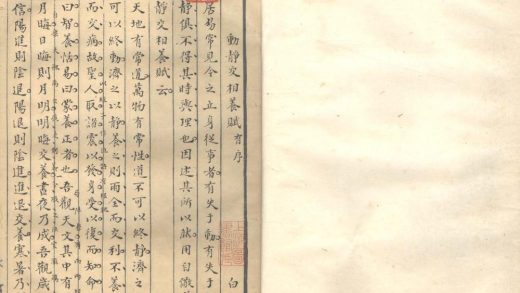 動靜交相養賦 有序 白
居易常見今之立身從事者有失于動有失于
靜俱不得其時與理也因述其所以然用自儆
靜交相養賦云
天地有常道萬物有常性道不可以終靜濟之
可以終動濟之以靜養之則兩全而交利不養
而交病故聖人取諸震以發身受以復而知命
曰智養恬易曰蒙養正者也吾觀天文其中有
月晦日晦則月明明晦交養晝夜乃成吾觀歲
信陽進則陰退陽退則陰進進退交養寒暑乃